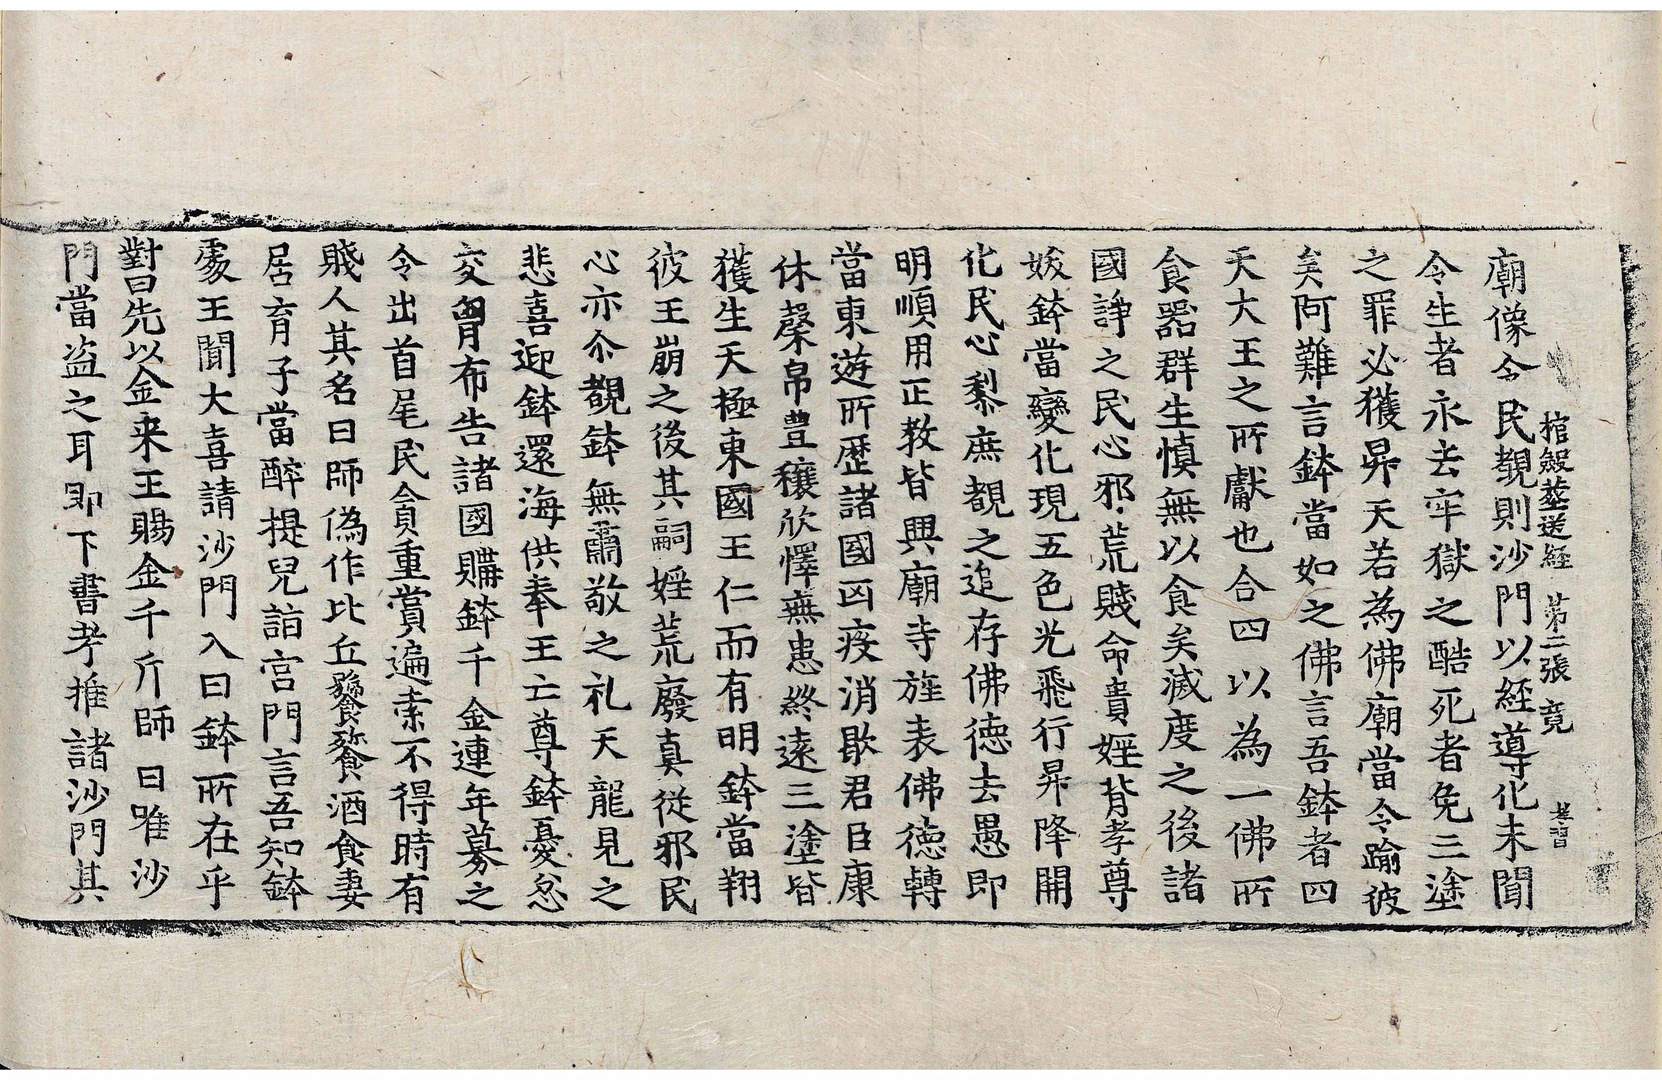 棺殮葬送經 第二張 竟
廟像令民覩則沙門以經導化未聞
令生者永去牢獄之酷死者免三塗
之罪必獲昇天若為佛廟當令踰彼
矣阿難言鉢當如之佛言吾鉢者四
天大王之所獻也合四以為一佛所
食器群生慎無以食矣滅度之後諸
國諍之民心邪荒賤命貴婬背孝尊
妭鉢當變化現五色光飛行昇降開
化民心黎庶覩之追存佛德去愚即
明順用正教皆興廟寺旌表佛德轉
當東遊所歷諸國凶疫消歇君臣康
休槃帛豊穰欣懌無患終遠三塗皆
獲生天極東國王仁而有明鉢當翔
彼王崩之後其嗣婬荒廢真從邪民
心亦尒覩鉢無肅敬之礼天龍見之
悲喜迎鉢還海供奉王亡尊鉢憂忿
交胷布告諸國購鉢千金連年募之
令出首尾民貪重賞遍索不得時有
賤人其名曰師偽作比丘饕餮酒食妻
居育子當醉提兒詣宮門言吾知鉢
處王聞大喜請沙門入曰鉢所在乎
對曰先以金来王賜金千斤師曰唯沙
門當盜之耳即下書考推諸沙門其